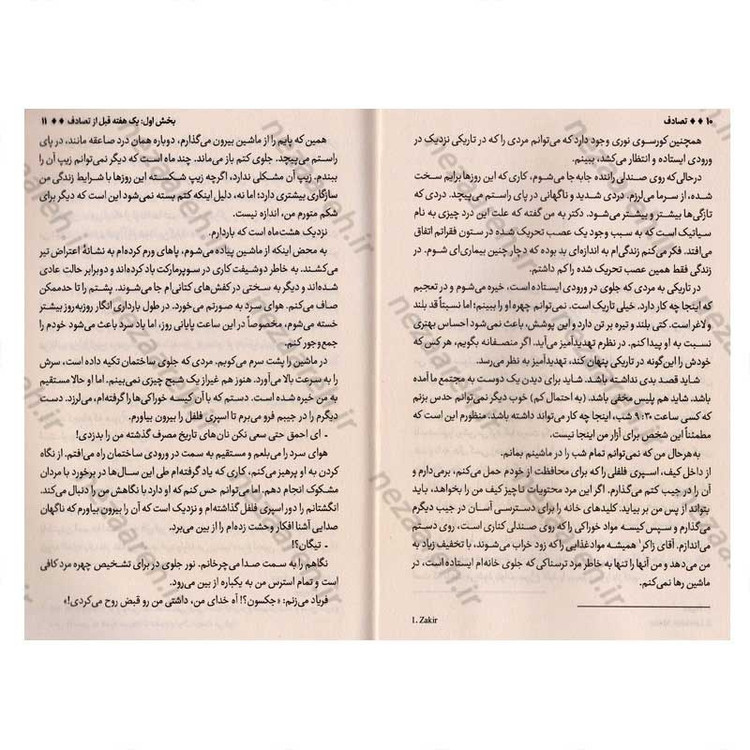 ۱۰ ♦♦ تصادف
همچنین کورسوی نوری وجود دارد که می‌توانم مردی را که در تاریکی نزدیک در
ورودی ایستاده و انتظار می‌کشد، ببینم.
درحالی‌که روی صندلی راننده جابه جا می‌شوم، کاری که این روزها برایم سخت
شده، از سرما می‌لرزم. دردی شدید و ناگهانی در پای راستم می‌پیچد. دردی که
تازگی‌ها بیشتر و بیشتر می‌شود. دکتر به من گفته که علت این درد چیزی به نام
سیاتیک است که به سبب وجود یک عصب تحریک شده در ستون فقراتم اتفاق
می‌افتد. فکر می‌کنم زندگی‌ام به اندازه‌ای بد بوده که دچار چنین بیماری‌ای شوم. در
زندگی فقط همین عصب تحریک شده را کم داشتم.
در تاریکی به مردی که جلوی در ورودی ایستاده است، خیره می‌شوم و در تعجبم
که اینجا چه کار دارد. خیلی تاریک است. نمی‌توانم چهره او را ببینم؛ اما نسبتاً قد بلند
و لاغر است. کتی بلند و تیره بر تن دارد و این پوشش، باعث نمی‌شود احساس بهتری
نسبت به او پیدا کنم. در نظرم تهدیدآمیز می‌آید. اگر منصفانه بگویم، هر کس که
خودش را این‌گونه در تاریکی پنهان کند، تهدیدآمیز به نظر می‌رسد.
شاید قصد بدی نداشته باشد. شاید برای دیدن یک دوست به مجتمع ما آمده
باشد. شاید هم پلیس مخفی باشد. (به احتمال کم) خوب دیگر نمی‌توانم حدس بزنم
که کسی ساعت ۹:۳۰ شب، اینجا چه کار می‌تواند داشته باشد. منظورم این است که
مطمئناً این شخص برای آزار من اینجا نیست.
به هرحال من که نمی‌توانم تمام شب را در ماشینم بمانم.
از داخل کیف، اسپری فلفلی را که برای محافظت از خودم حمل می‌کنم، برمی‌دارم و
آن را در جیب کتم می‌گذارم. اگر این مرد محتویات ناچیز کیف من را بخواهد، باید
بتواند از پس من بر بیاید. کلیدهای خانه را برای دسترسی آسان در جیب دیگرم
می‌گذارم و سپس کیسه مواد خوراکی را که روی صندلی کناری است، روی دستم
می‌اندازم. آقای زاکر۱ همیشه موادغذایی را که زود خراب می‌شوند، با تخفیف زیاد به
من می‌دهد و من آنها را تنها به خاطر مرد ترسناکی که جلوی خانه‌ام ایستاده است، در
ماشین رها نمی‌کنم.
1. Zakir
بخش اول: یک هفته قبل از تصادف ♦♦ ۱۱
همین که پایم را از ماشین بیرون می‌گذارم، دوباره همان درد صاعقه مانند، در پای
راستم می‌پیچد. جلوی کتم باز می‌ماند. چند ماه است که دیگر نمی‌توانم زیپ آن را
ببندم. زیپ آن مشکلی ندارد، اگرچه زیپ شکسته این روزها با شرایط زندگی من
سازگاری بیشتری دارد؛ اما نه، دلیل اینکه کتم بسته نمی‌شود این است که دیگر برای
شکم متورم من، اندازه نیست.
نزدیک هشت‌ماه است که باردارم.
به محض اینکه از ماشین پیاده می‌شوم، پاهای ورم کرده‌ام به نشانهٔ اعتراض تیر
می‌کشند. به خاطر دوشیفت کاری در سوپرمارکت باد کرده‌اند و دوبرابر حالت عادی
شده‌اند و دیگر به سختی در کفش‌های کتانی‌ام جا می‌شوند. پشتم را تا حدممکن
صاف می‌کنم. هوای سرد به صورتم می‌خورد. در طول بارداری انگار روزبه‌روز بیشتر
خسته می‌شوم، مخصوصاً در این ساعت پایانی روز، اما باد سرد باعث می‌شود خودم را
جمع‌وجور کنم.
در ماشین را پشت سرم می‌کوبم. مردی که جلوی ساختمان تکیه داده است، سرش
را به سرعت بالا می‌آورد. هنوز هم غیراز یک شبح چیزی نمی‌بینم. اما او حالا مستقیم
به من خیره شده است. دستم که با آن کیسه خوراکی‌ها را گرفته‌ام، می‌لرزد. دست
دیگرم را در جیبم فرو می‌برم تا اسپری فلفل را بیرون بیاورم.
- ای احمق حتی سعی نکن نان‌های تاریخ مصرف گذشته من را بدزدی!
هوای سرد را می‌بلعم و مستقیم به سمت در ورودی ساختمان راه می‌افتم. از نگاه
کردن به او پرهیز می‌کنم، کاری که یاد گرفته‌ام طی این سال‌ها در برخورد با مردان
مشکوک انجام دهم. اما می‌توانم حس کنم که او دارد با نگاهش من را دنبال می‌کند.
انگشتانم را دور اسپری فلفل گذاشته‌ام و نزدیک است که آن را بیرون بیاورم که ناگهان
صدایی آشنا افکار وحشت زده‌ام را از بین می‌برد.
- تیگان؟!
نگاهم را به سمت صدا می‌چرخانم. نور جلوی در برای تشخیص چهره مرد کافی
است و تمام استرس من به یکباره از بین می‌رود.
فریاد می‌زنم: «جکسون؟! آه خدای من، داشتی من رو قبض روح می‌کردی!»
nezaareh.ir